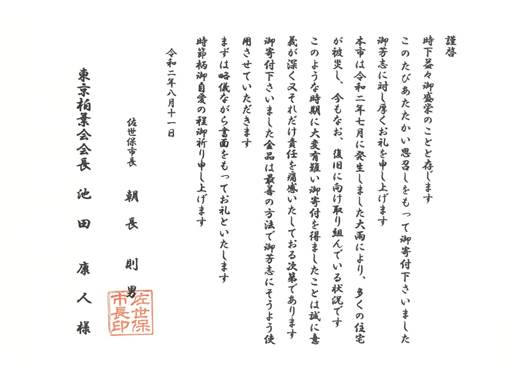 謹啓
時下益々御盛栄のことと存じます
このたびあたたかい思召しをもって御寄付下さいました
御芳志に対し厚くお礼を申し上げます
本市は令和二年七月に発生しました大雨により、多くの住宅
が被災し、今もなお、復旧に向け取り組んでいる状況です
このような時期に大変有難い御寄付を得ましたことは誠に意
義が深く又それだけ責任を痛感いたしておる次第であります
御寄付下さいました金品は最善の方法で御芳志にそうよう使
用させていただきます
まずは略儀ながら書面をもってお礼といたします
時節柄御自愛の程御祈り申し上げます
令和二年八月十一日
佐世保市長 朝長則男
佐世保
市長印
東京柏葉会会長 池田康人様